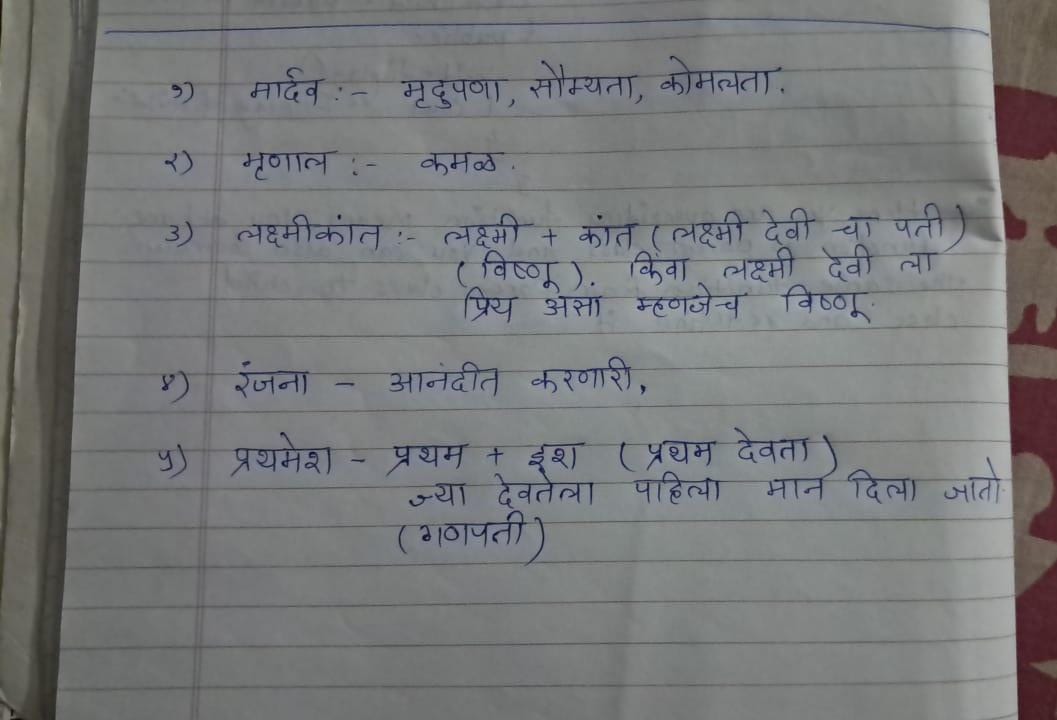 १) मार्दव :- मृदुपणा, सौम्यता, कोमलता.
२) मृणाल :- कमळ.
३) लक्ष्मीकांत :- लक्ष्मी + कांत (लक्ष्मी देवी चा पती)
(विष्णू). किंवा लक्ष्मी देवी ला
प्रिय असा म्हणजेच विष्णू.
४) रंजना - आनंदीत करणारी,
५) प्रथमेश - प्रथम + इश (प्रथम देवता)
ज्या देवतेला पहिला मान दिला जातो.
(गणपती)